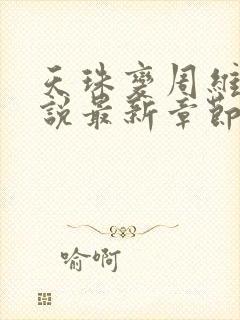 天珠變周維
說最新章節
喻啊